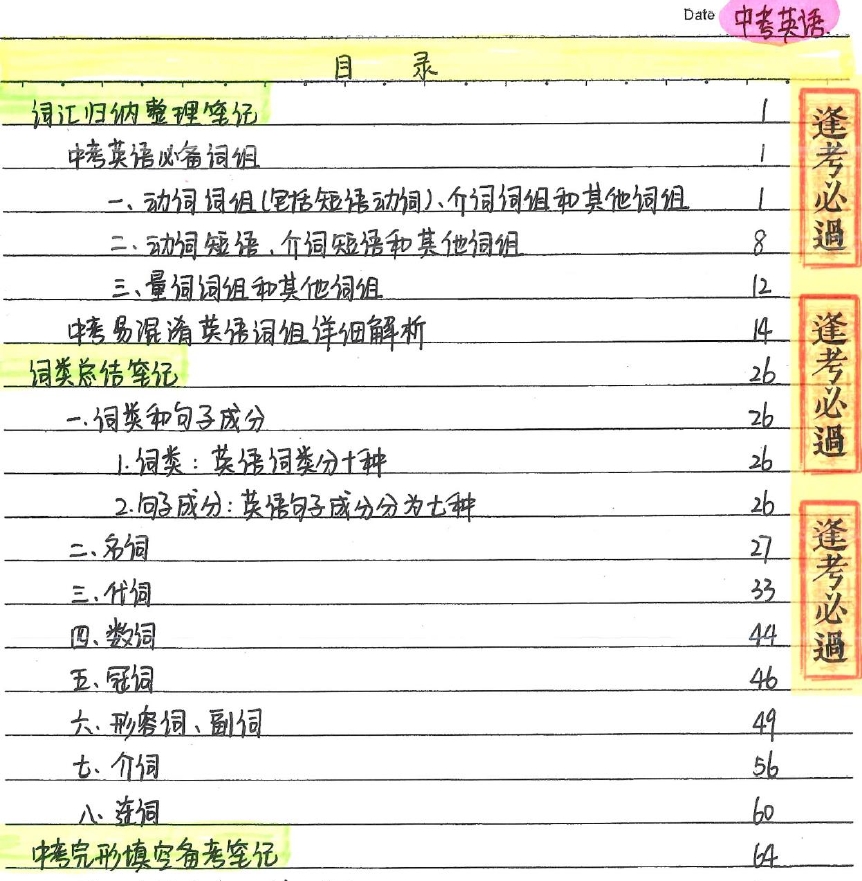 Date 中考英语
目 录
词汇归纳整理笔记 1
中考英语必备词组 1
一、动词词组(包括短语动词)、介词词组和其他词组 1
二、动词短语、介词短语和其他词组 8
三、量词词组和其他词组 12
中考易混淆英语词组详细解析 14
词类总结笔记 26
一、词类和句子成分 26
1.词类：英语词类分十种 26
2.句子成分：英语句子成分分为七种 26
二、名词 27
三、代词 33
四、数词 44
五、冠词 46
六、形容词、副词 49
七、介词 56
八、连词 60
中考完形填空备考笔记 64
逢考必過
逢考必過
逢考必過